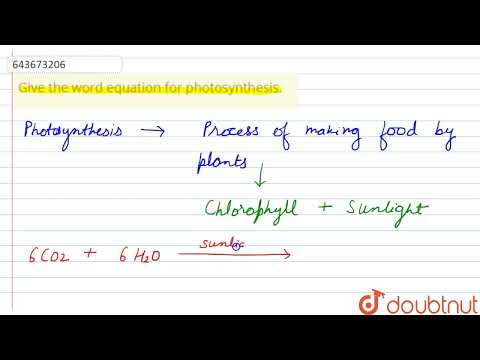 643673206
Give the word equation for photosynthesis.
Photosynthesis → Process of making food by
plants
↓
Chlorophyll + Sunlight
6CO2 + 6H2O sunli →
doubtnut